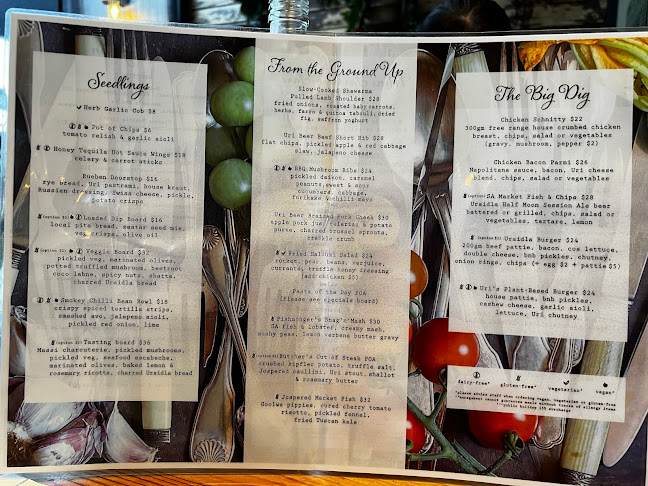 Seedlings
Herb Garlic Cob $8
Pot of Chips $6
tomato relish & garlic aioli
Honey Tequila Hot Sauce Wings $18
celery & carrot sticks
Rueben Doorstop $16
rye bread, Uri pastrami, house kraut,
Russian dressing, Swiss cheese, pickle,
potato crisps
Loaded Dip Board $16
local pita bread, master seed mix,
veg crisps, olive oil
Veggie Board $32
pickled veg, marinated olives,
potted truffled mushroom, beetroot
coco labne, spicy nuts, shatta,
charred Uraidla Bread
Smokey Chilli Bean Bowl $18
crispy spiced tortilla strips,
smashed avo, jalapeno aioli,
pickled red onion, lime
Tasting board $36
charcuterie, pickled mushrooms,
pickled veg, seafood escabeche,
marinated olives, baked lemon &
rosemary ricotta, charred Uraidla bread
From the Ground Up
Slow-Cooked Shawarma
Pulled Lamb Shoulder $28
fried onions, roasted baby carrots,
herbs, farro & quinoa tabouli, dried
fig, saffron yoghurt
Uri Beer Beef Short Rib $28
flat chips, pickled apple & red cabbage
slaw, jalapeno cheese
BBQ Mushroom Ribs $24
pickled daikon, caramel
peanuts, sweet & sour
cucumbers, cabbage,
furikake kohlii mayo
Uri Beer Braised Pork Cheek $30
apple pork jus, celeriac & potato
puree, charred brussel sprouts,
crackle crunch
Fried Haloumi Salad $24
rocket, pear, beans, verjuice,
currants, truffle honey dressing
(add chicken $5)
Pasta of the Day POA
(Please see specials board)
Fishmonger's Snag'n'Mash $30
SA fish & lobster, creamy mash,
mushy peas, lemon verbena butter gravy
Butcher's Cut of Steak POA
crushed kipfler potato, truffle salt,
Jospered caulini, Uri stout, shallot
& rosemary butter
Jospered Market Fish $32
Goolwa pippies, cured cherry tomato
risotto, pickled fennel,
fried Tuscan kale
The Big Dig
Chicken Schnitty $22
300gm free range house crumbed chicken
breast, chips, salad or vegetables
(gravy, mushroom, pepper $2)
Chicken Bacon Parmi $26
Napolitana sauce, bacon, Uri cheese
blend, chips, salad or vegetables
SA Market Fish & Chips $28
Uraidla Half Moon Session Ale beer
battered or grilled, chips, salad or
vegetables, tartare, lemon
Uraidla Burger $24
200gm beef pattie, bacon, cos lettuce,
double cheese, bnh pickles, chutney,
onion rings, chips (+ egg $2 + pattie $5)
Uri's Plant-Based Burger $24
house pattie, bnh pickles,
cashew cheese, garlic aioli,
lettuce, Uri chutney
dairy-free* gluten-free* vegetarian* vegan*
*public holiday 15% surcharge